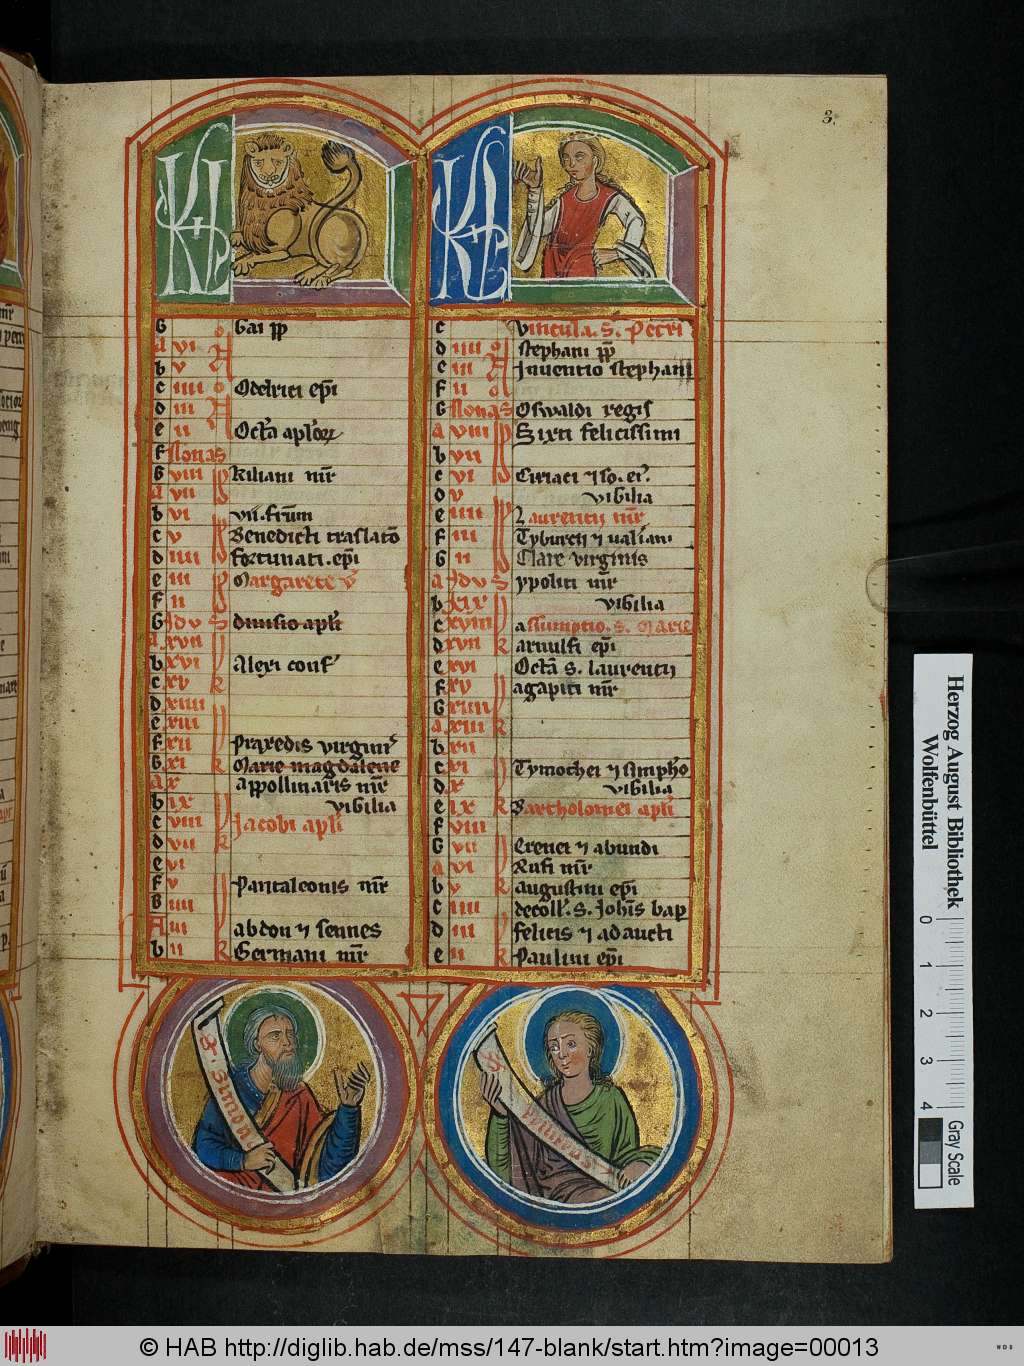 3.
KL
G Gai pp
A vi
b v
c iiii Odelrici epi
d iii
e ii Octa aplor
f Nonas
G viii Kiliani mr
A vii
b vi vii. frum
c v Benedicti traslatio
d iiii fortunati. epi
e iii Margarete v
f ii
G Idus diuisio apli
A xvii
b xvi Alexi conf
c xv
d xiiii
e xiii
f xii Praxedis virginis
G xi Marie magdalene
A x appollinaris mr
b ix vigilia
c viii Jacobi apli
d vii
e vi
f v Pantaleonis mr
G iiii
A iii abdon et sennes
b ii Germani mr
KL
c Vincula. S. Petri
d iiii Stephani pp
e iii Inuentio stephani
f ii
G Nonas Oswaldi regis
A viii Sixti felicissimi
b vii
c vi Ciriaci et so. ei
d v vigilia
e iiii Laurentii mr
f iii Tyburcii et valian
G ii Clare virginis
A Idus ypoliti mr
b xix vigilia
c xviii assumptio. S. Marie
d xvii arnulfi epi
e xvi Octa S. laurentii
f xv agapiti mr
G xiiii
A xiii
b xii
c xi Tymothei et simpho
d x vigilia
e ix Bartholomei apli
f viii
G vii Erenei et abundi
A vi Rufi mr
b v augustini epi
c iiii decoll. S. Johis bap
d iii felicis et adaucti
e ii Paulini epi
Herzog August Bibliothek
Wolfenbüttel
0 1 2 3 4
Gray Scale
© HAB http://diglib.hab.de/mss/147-blank/start.htm?image=00013